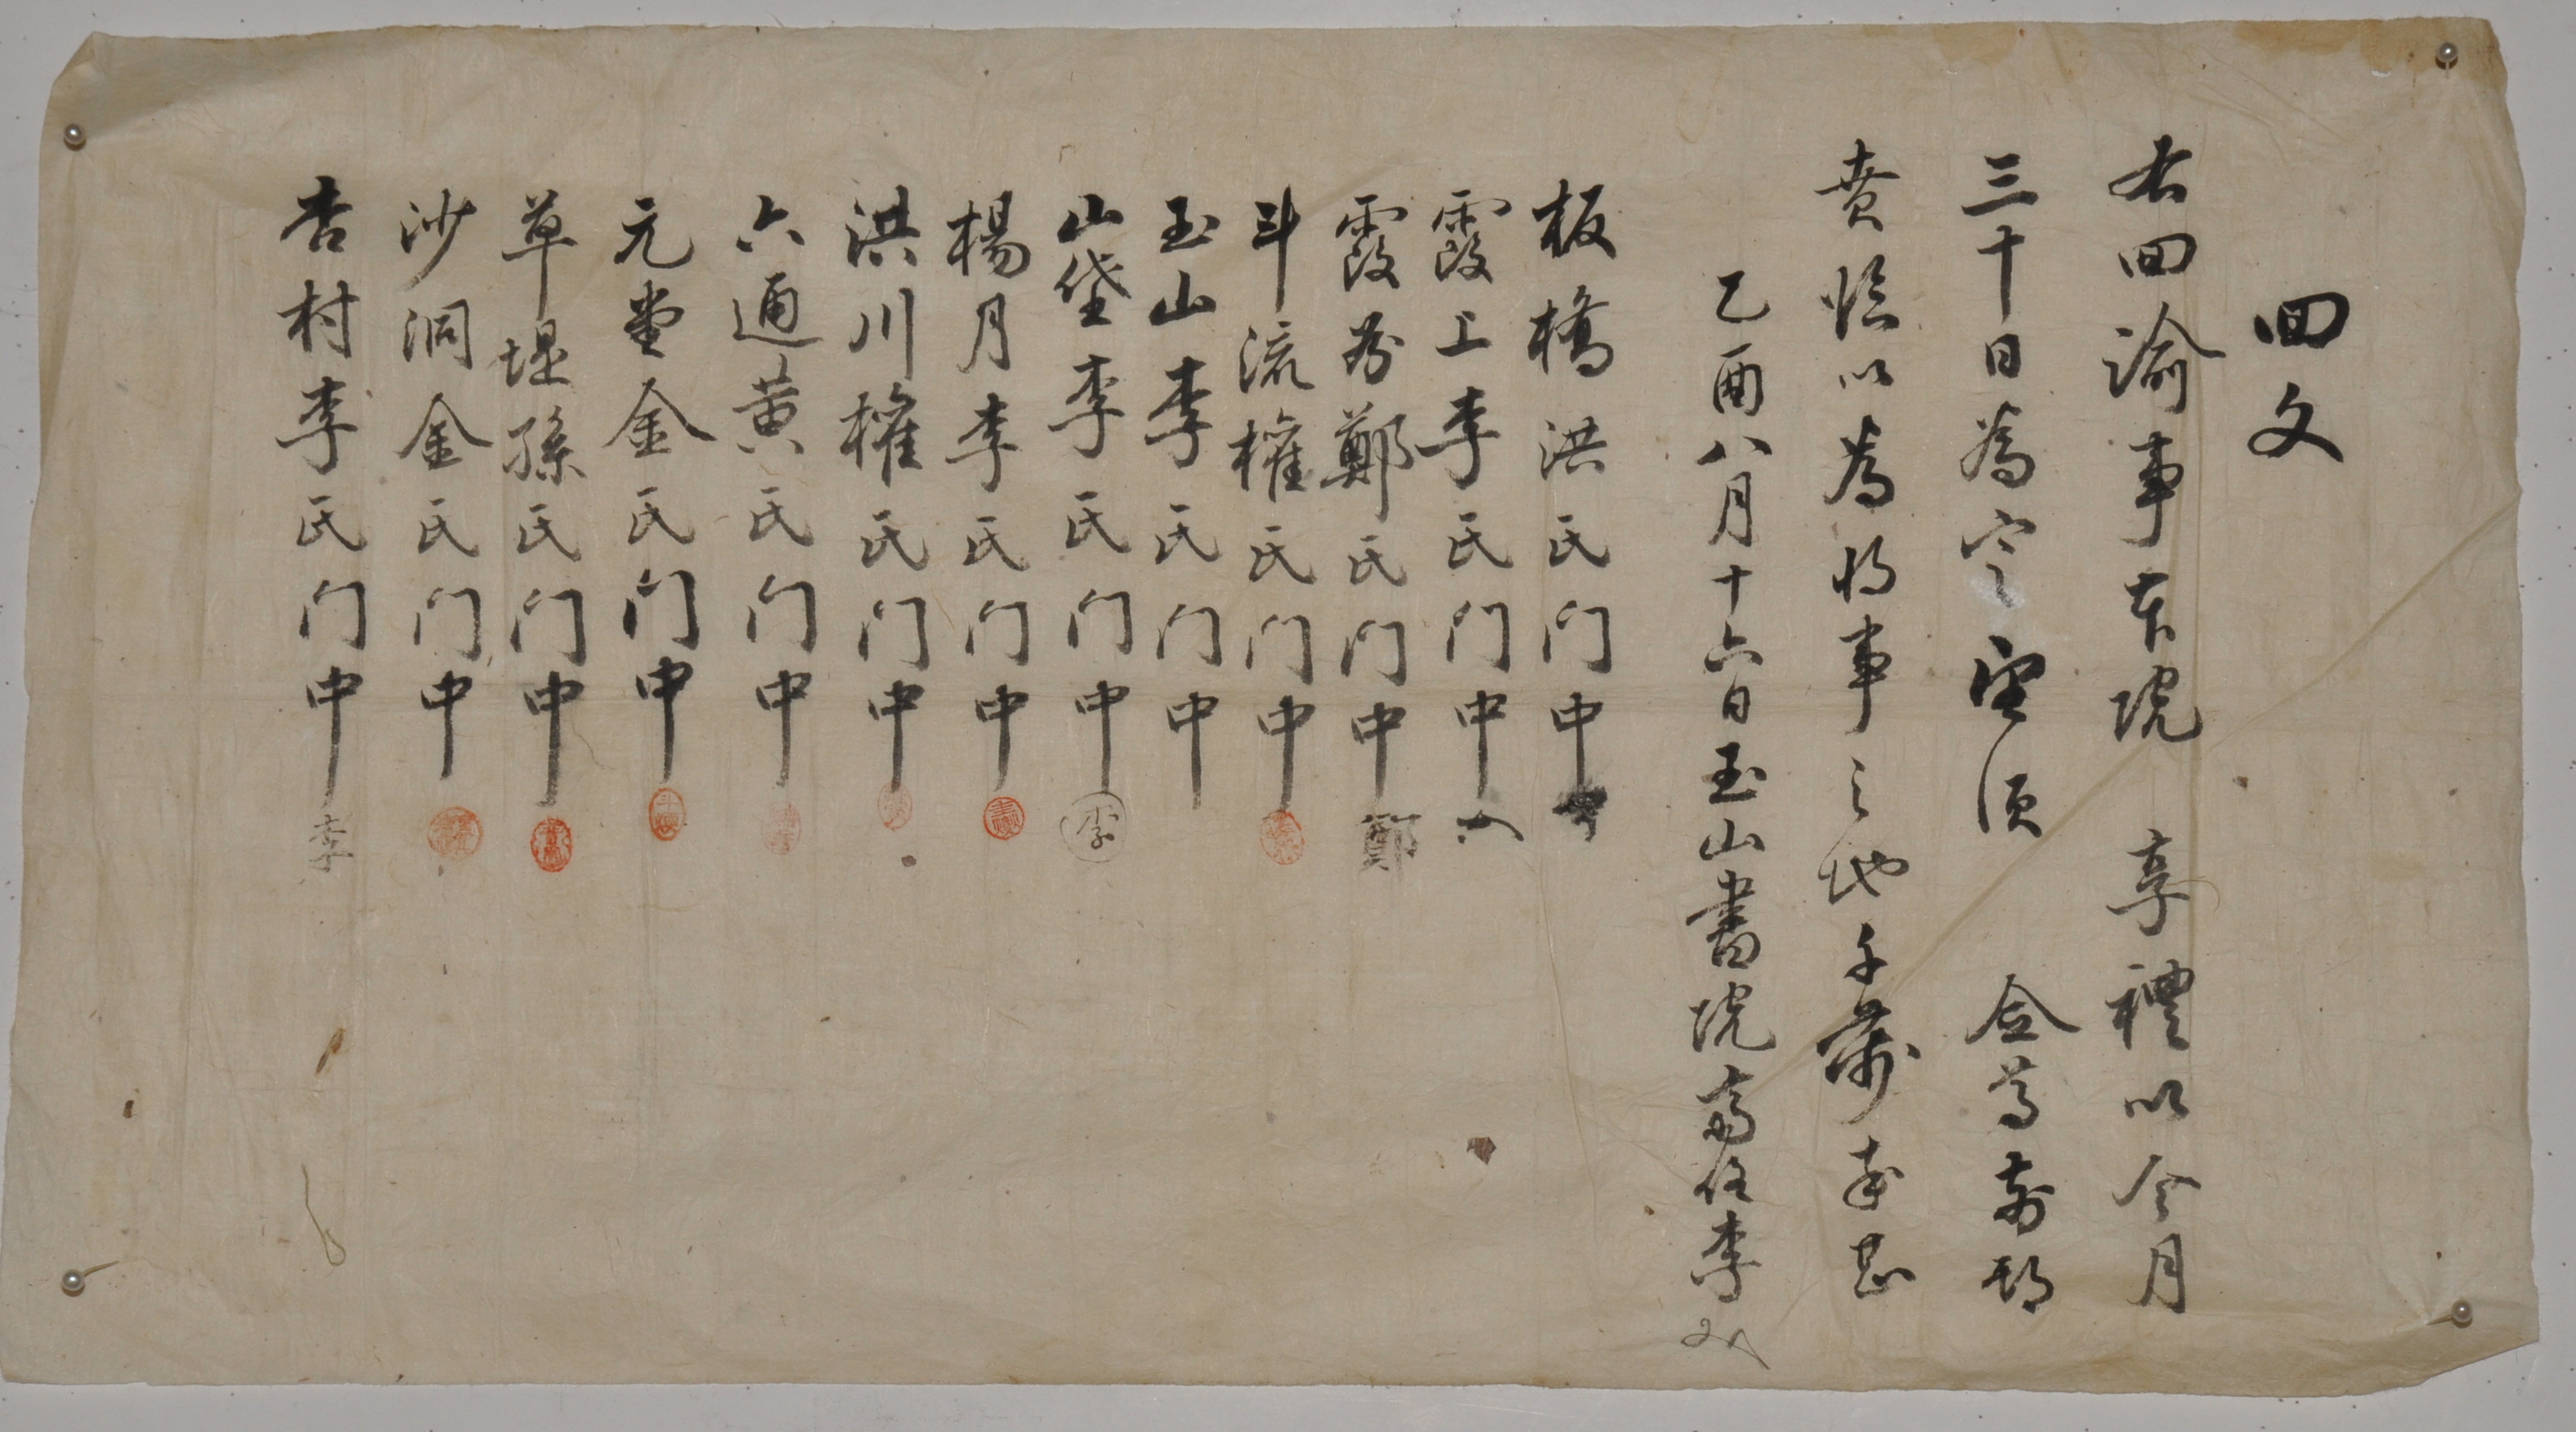 回文
右回諭事本院 享禮以今月
三十日爲定 望須 僉尊前期
賁臨以爲將事之地千萬幸甚
乙酉八月十六日玉山書院齋任李
板橋洪氏门中
霞上李氏门中
霞谷鄭氏门中 鄭
斗流權氏门中
玉山李氏门中
山垈李氏门中 李
楊月李氏门中
洪川權氏门中
六通黃氏门中
元堂金氏门中
草堤孫氏门中
沙洞金氏门中
杏村李氏门中 李